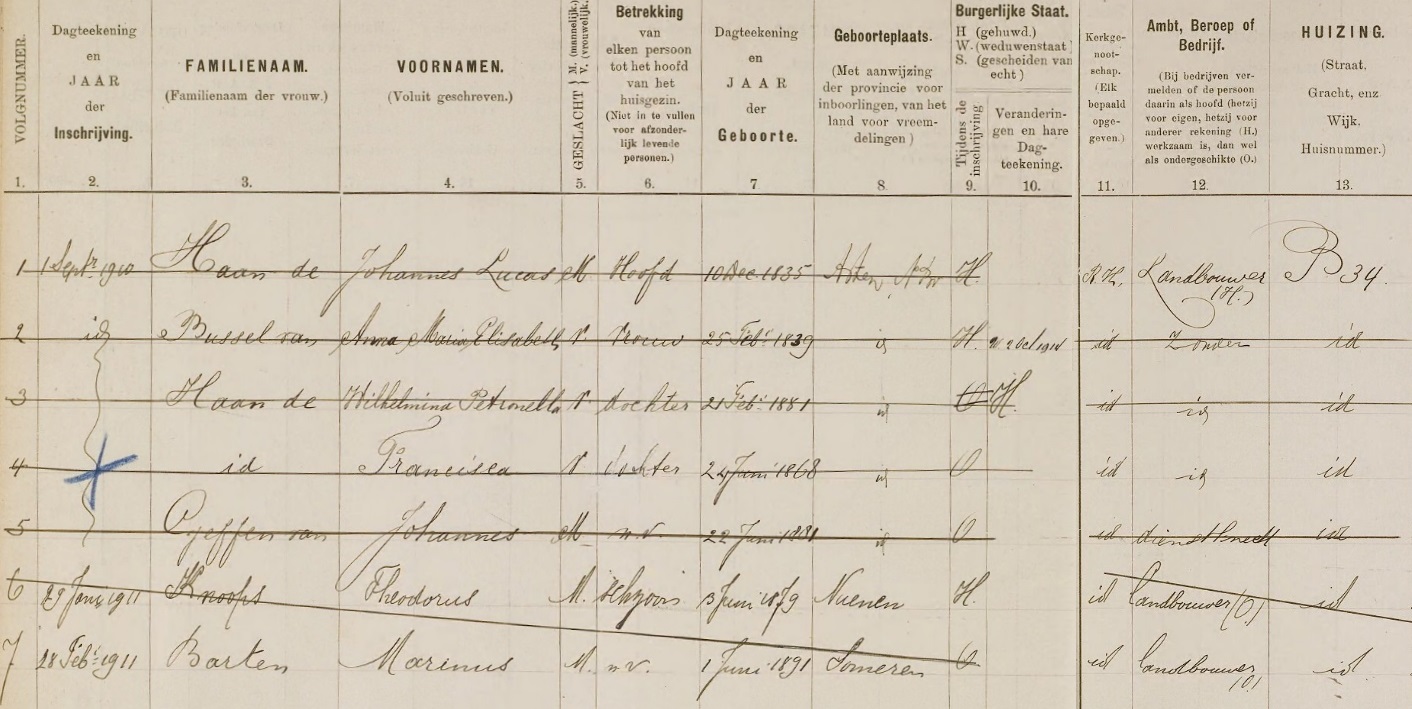 VOLGNUMMER.
1.
Dagteekening
en
JAAR
der
Inschrijving.
2.
FAMILIENAAM.
(Familienaam der vrouw.)
3.
VOORNAMEN.
(Voluit geschreven.)
4.
GESLACHT { M. (mannelijk.) V. (vrouwelijk.)
5.
Betrekking
van
elken persoon
tot het hoofd
van het
huisgezin.
(Niet in te vullen
voor afzonder-
lijk levende
personen.)
6.
Dagteekening
en
JAAR
der
Geboorte.
7
Geboorteplaats.
(Met aanwijzing
der provincie voor
inboorlingen, van het
land voor vreem-
delingen)
8.
Burgerlijke Staat.
H (gehuwd.)
W. (weduwenstaat)
S. (gescheiden van
echt)
Tijdens de
inschrijving
9.
Veranderin-
gen en hare
Dag-
teekening.
10.
Kerkge-
noot-
schap.
(Elk
bepaald
opge-
geven.)
11.
Ambt, Beroep of
Bedrijf.
(Bij bedrijven ver-
melden of de persoon
daarin als hoofd (hetzij
voor eigen, hetzij voor
anderer rekening (H.)
werkzaam is, dan wel
als ondergeschikte (O.)
12.
HUIZING.
(Straat.
Gracht, enz
Wijk.
Huisnummer.)
13.
1 1 Septr 1910 Haan de Johannes Lucas M Hoofd 10 Dec 1835 Asten H. R.K. Landbouwer (H.) B 34.
2 id Bussel van Anna Maria Elisabeth V. Vrouw 25 Febr 1839 id H. W 2 Oct id Zonder id
3 Haan de Wilhelmina Petronella V dochter 21 Febr 1881 id O H. id id id
4 id Francisca V dochter 24 Juni 1868 id O id id id
5 Geffen van Johannes M n.v. 22 Juni 1881 id O id dienstknecht id
6 29 1911 Knoops Theodorus M. schzoon 3 Juni 1879 Nuenen H. id landbouwer (O) id
7 28 Febr 1911 Barten Marinus M. n.v. 1 Juni 1891 Someren O id landbouwer (O) id